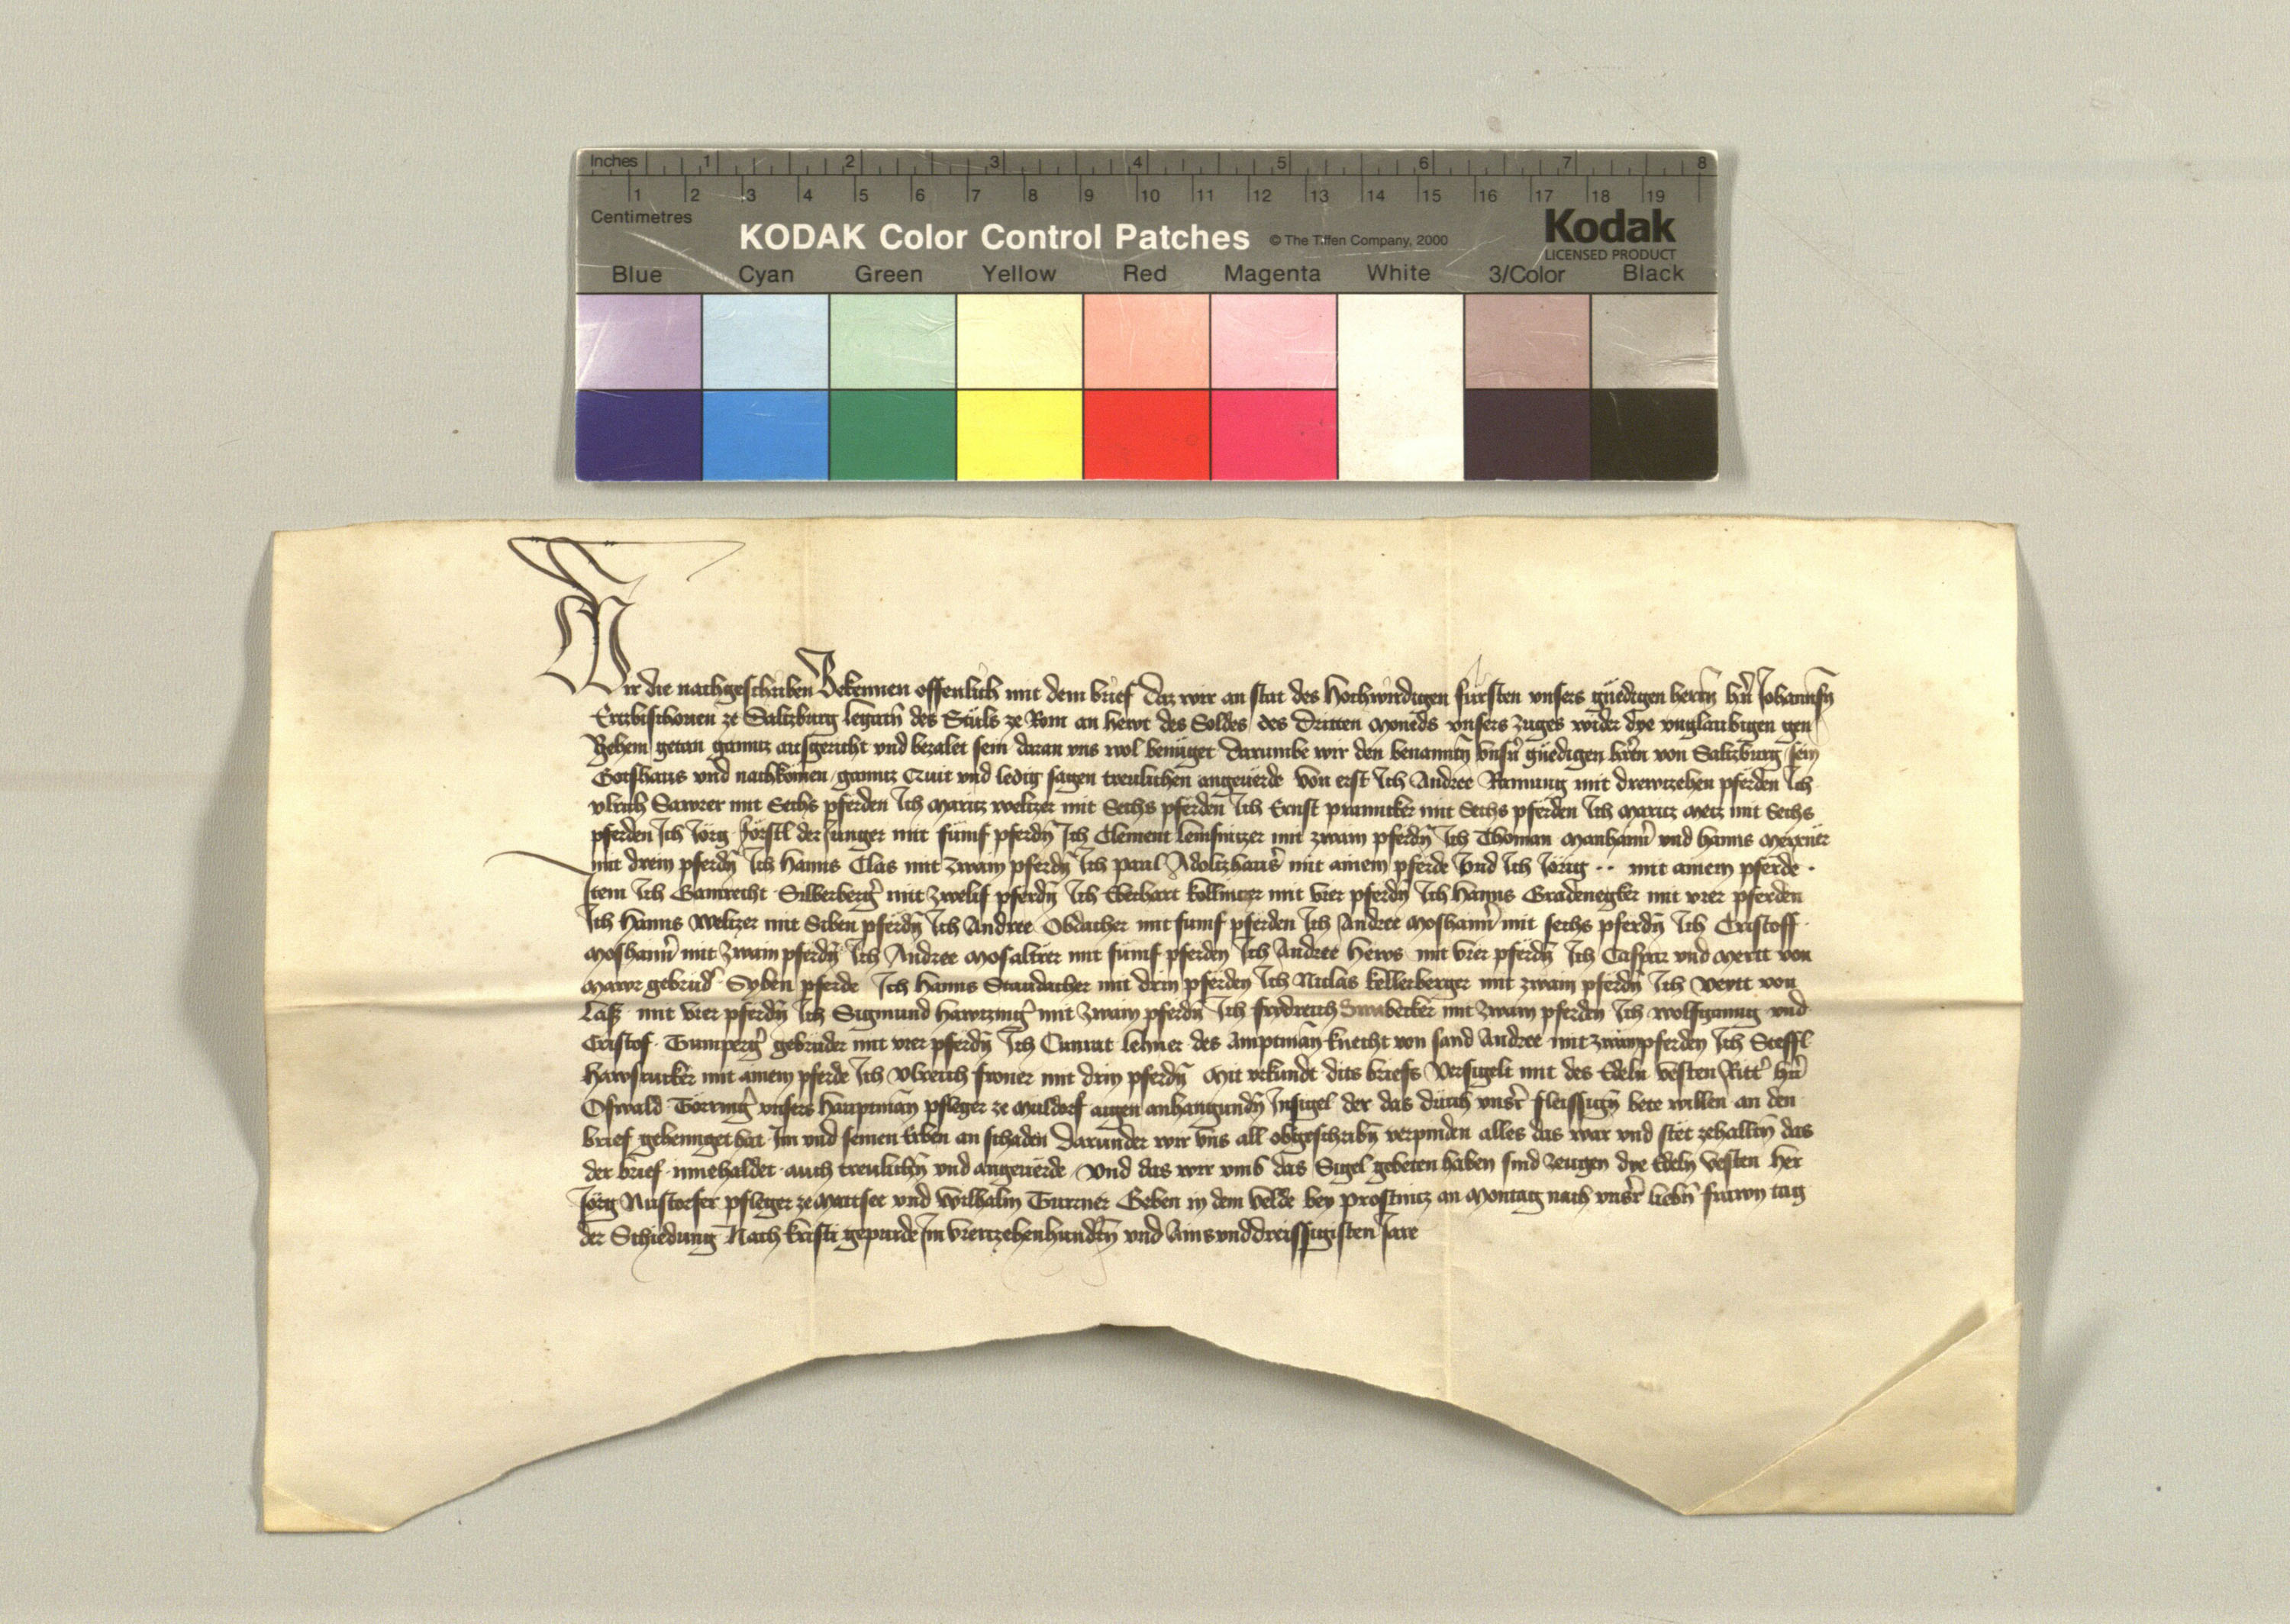 Inches 1 2 3 4 5 6 7 8
1 2 3 4 5 6 7 8 9 10 11 12 13 14 15 16 17 18 19
Centimetres
KODAK Color Control Patches © The Tiffen Company, 2000 Kodak
LICENSED PRODUCT
Blue Cyan Green Yellow Red Magenta White 3/Color Black
Wir die nachgeschriben Bekennen offenlich mit dem brief Daz wir an stat des Hochwirdigen fürsten vnsers gnedigen herrn hrn Johannsn
Ertzbischouen ze Saltzburg legatn des Stuls ze Rom an hewt des Soldes des Dritten moneds vnsers zuges wider dye vnglaubigen gen
Behem getan ganntz ausgericht vnd bezalet sein daran vns wol benüget Darumbe wir den benanntn vnsn gnedigen hrn von Saltzburg sein
Gotshaus vnd nachkomen ganntz Quit vnd ledig sagen treulichen angeuerde von erst Ich Andree Ramung mit drewtzehen pferden Ich
vlrich Sawrer mit Sechs pferden Ich Maritz weltzer mit Sechs pferden Ich Ernst prannker mit Sechs pferden Ich Maritz Metz mit Sechs
pferden Ich Jörg Förstl der Junger mit fümf pferdn Ich Clement lemsnitzer mit zwain pferdn Ich Thoman Manhamr vnd hanns
mit drein pferdn Ich Hanns Clas mit zwain pferdn Ich paul Adoltzhausr mit ainem pferde vnd Ich Jörig ·· mit ainem pferde ·
Item Ich Gamrecht Silberbergr mit zwelif pferdn Ich Eberhart kollnitzer mit vier pferdn Ich Hanns Gradenegker mit vier pferden
Ich Hanns Weltzer mit Siben pferdn Ich Andree Obdacher mit fumf pferden Ich Andree Moshaimr mit sechs pferdn Ich Cristoff
Moshaimr mit zwain pferdn Ich Andree mit fumf pferden Ich Andree Hews mit vier pferdn Ich Caspar vnd Mertt von
Mawr gebrüdr Syben pferde Ich Hanns Staudacher mit drin pferden Ich Niclas kellerberger mit zwain pferdn Ich veytt von
mit vier pferdn Ich Sigmund Hawtzingr mit zwain pferdn Ich frydreich mit zwain pferden Ich wolfganng vnd
Cristof Trumpergr gebrüder mit vier pferdn Ich Cunrat lehner des Amptman knecht von sand Andree mit zwain pferden Ich Steffl
Hawsrucker mit ainem pferde Ich vlreich froner mit drin pferdn Mit vrkundt dits briefs versigelt mit des Edeln vesten Rittr hrn
Oswald Törringr vnsers Hauptman pfleger ze Muldorf aigen anhangundn Insigel der das durch vnsr fleissign bete willen an den
brief gehennget hat Im vnd seinen Erben an schaden Darunder wir vns all obgeschribn verpinden alles das war vnd stet zehalltn das
der brief innehaldet auch treulichn vnd angeuerde vnd das wir vmb das Sigel gebeten haben sind zeugen dye Edeln vesten Her
Jörg Nustorfer pfleger ze Mattsee vnd wilhalm Turrner Geben in dem velde bey Prostnitz an Montag nach vnsr liebn frawn tag
der Schiedung Nach kristi gepurde Im viertzehenhundrtn vnd Ainsunddreissigisten Jare